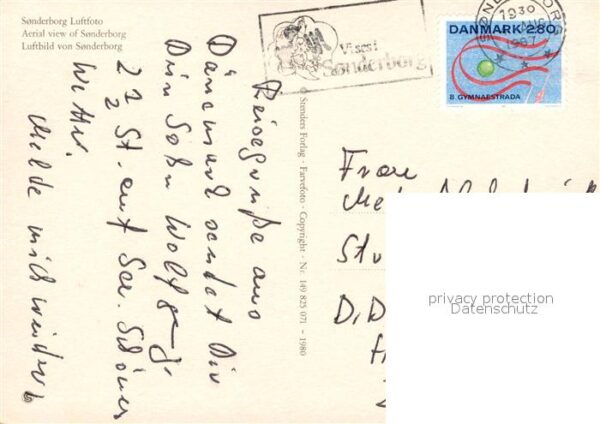 Sønderborg Luftfoto
Aerial view of Sønderborg
Luftbild von Sønderborg
Vi ses i
Sønderborg
SØNDERBORG
1930
1987
DANMARK 2.80
8. GYMNAESTRADA
© Stenders Forlag · Farvefoto · Copyright · Nr. 149 825 071 – 1980
Reisegrüße aus
Dänemark sendet Dir
Dein Sohn Wolfgang.
2 St. auf See. Schönes
Wetter.
Melde mich wieder
Frau
Stu
D.D
privacy protection
Datenschutz